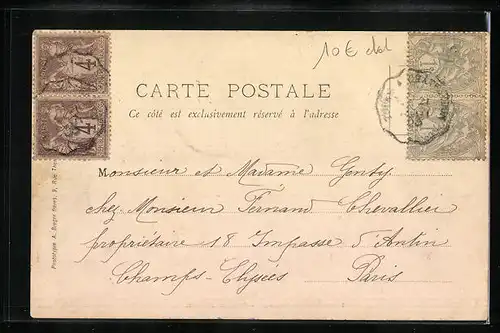 10€ dd
CARTE POSTALE
Ce côté est exclusivement réservé à l'adresse
4
4
1
1
Monsieur et Madame Genty
chez Monsieur Fernand Chevallier
propriétaire 18 Impasse d'Antin
Champs-Elysées Paris
Phototypie A. Bergeret